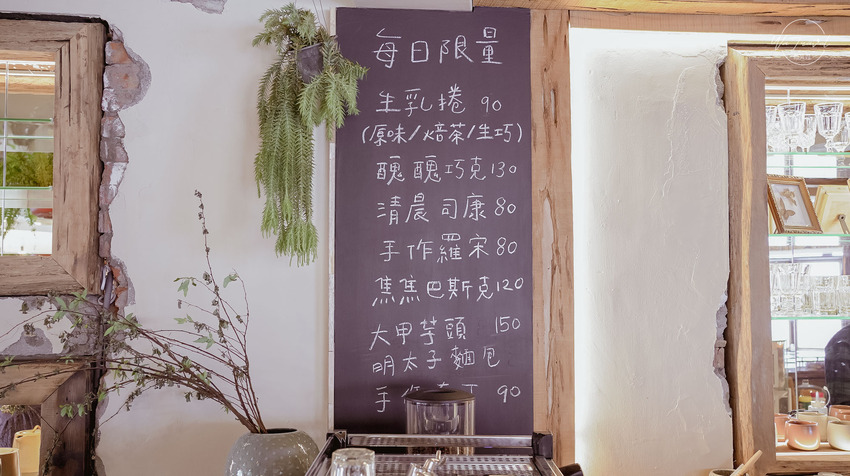 每日限量
生乳捲 90
(原味/焙茶/生巧)
醜醜巧克130
清晨司康80
手作羅宋80
焦焦巴斯克120
大甲芋頭 150
明太子麵包
手作 90